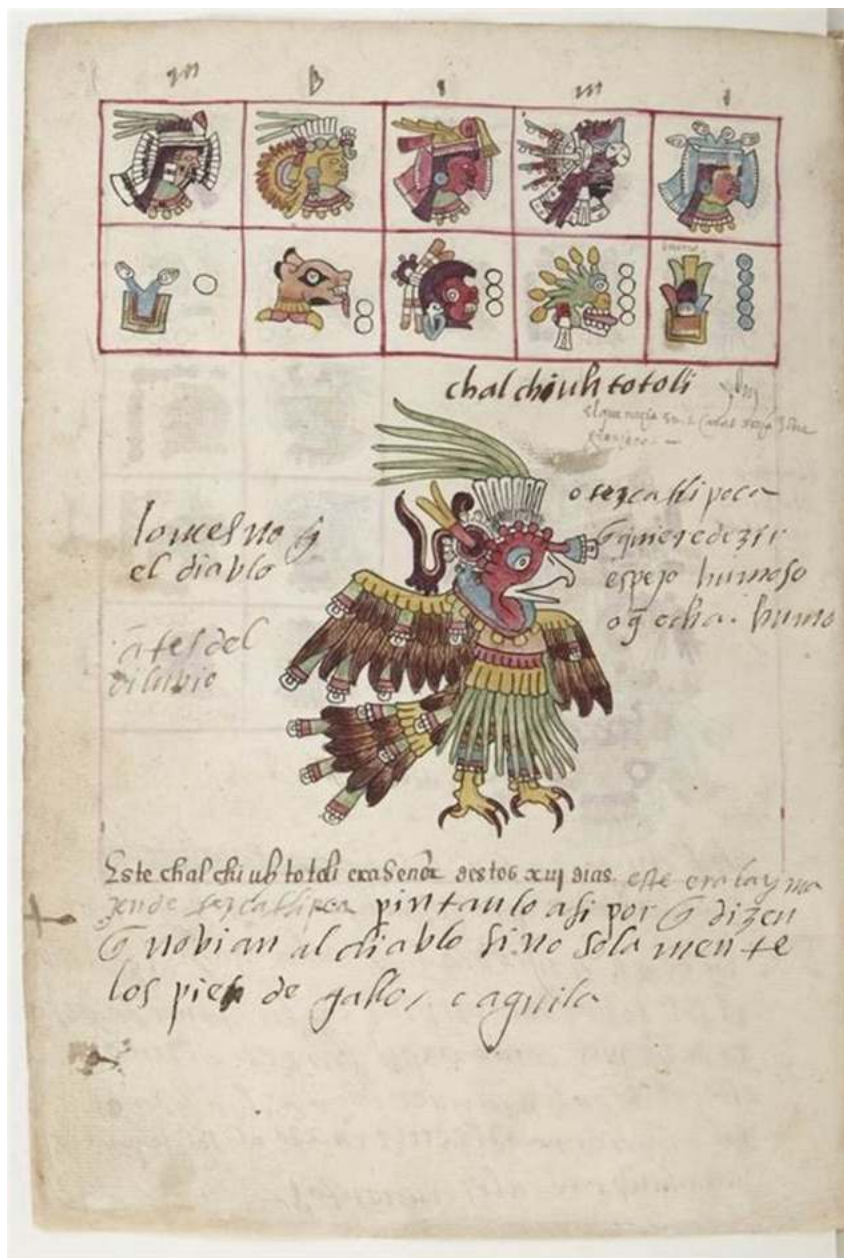 m b i m i
chalchiuhtotoli
o tezcatlipoca
q̃ quiere dezir
espejo humoso
o q̃ echa. humo
lo mesmo q̃
el diablo
ātes del
diluvio
Este chalchiuhtotoli era Señor destos xiij dias. este era la yma
jen de tezcatlipca pintanlo asi por q̃ dizen
q̃ no bian al diablo sino sola mente
los pies de gallo, o aguila